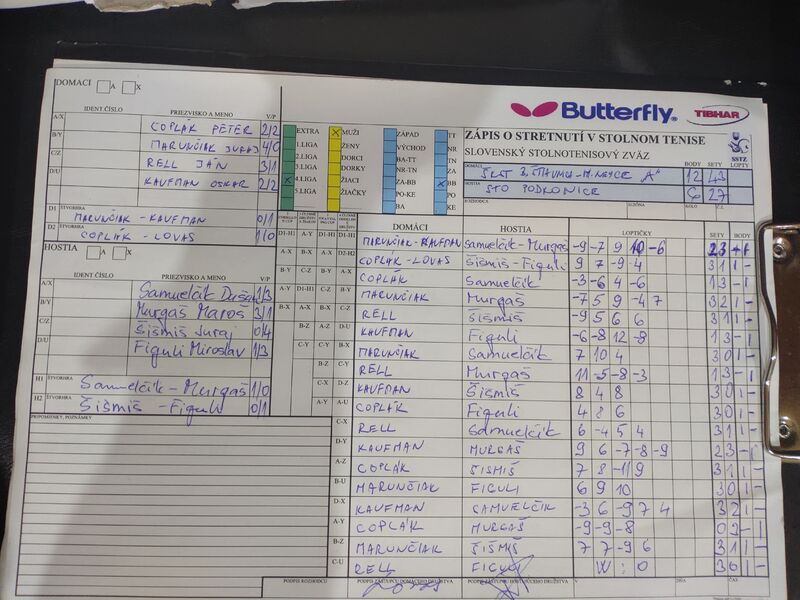 DOMÁCI A X
IDENT ČÍSLO PRIEZVISKO A MENO V/P
A/X COPLÁK PETER 2/2
B/Y MARUNČIAK JURAJ 4/0
C/Z RELL JÁN 3/1
D/U KAUFMAN OSKAR 2/2
D1 ŠTVORHRA MARUNČIAK - KAUFMAN 0/1
D2 ŠTVORHRA COPLÁK - LOVAS 1/0
HOSTIA A X
IDENT ČÍSLO PRIEZVISKO A MENO V/P
A/X Samuelčík Dušan 1/3
B/Y Murgaš Maroš 3/1
C/Z Šišmiš Juraj 0/4
D/U Figuli Miroslav 1/3
H1 ŠTVORHRA Samuelčik - Murgaš 1/0
H2 ŠTVORHRA Šišmiš - Figuli 0/1
PRIPOMIENKY, POZNÁMKY
Butterfly TIBHAR
EXTRA MUŽI ZÁPAD TT
1.LIGA ŽENY VÝCHOD NR
2.LIGA DORCI BA-TT TN
3.LIGA DORKY NR-TN ZA
4.LIGA ŽIACI ZA-BB BB
5.LIGA ŽIAČKY PO-KE PO
BA KE
ZÁPIS O STRETNUTÍ V STOLNOM TENISE
SLOVENSKÝ STOLNOTENISOVÝ ZVÄZ
SSTZ
BODY SETY LOPTY
DOMÁCI "A" 12 43
HOSTIA STO PODKONICE 6 27
ROZHODCA
DOMÁCI HOSTIA LOPTIČKY SETY BODY
D1-H1 MARUNČIAK-KAUFMAN Samuelčik-Murgaš -9 -7 9 10 -6 2 3 - 1
D2-H2 COPLÁK-LOVAS Šišmiš-Figuli 9 7 -9 4 3 1 1 -
COPLÁK Samuelčík -3 -6 4 -6 1 3 - 1
MARUNČIAK Murgaš -7 5 9 -4 7 3 2 1 -
RELL Šišmiš -9 5 6 6 3 1 1 -
KAUFMAN Figuli -6 -8 12 -8 1 3 - 1
MARUNČIAK Samuelčík 7 10 4 3 0 1 -
RELL Murgaš 11 -5 -8 -3 1 3 - 1
KAUFMAN Šišmiš 8 4 8 3 0 1 -
COPLÁK Figuli 4 8 6 3 0 1 -
C-X RELL Samuelčík 6 -4 5 4 3 1 1 -
D-Y KAUFMAN MURGAŠ 9 6 -7 -8 -9 2 3 - 1
A-Z COPLÁK ŠIŠMIŠ 7 8 -11 9 3 1 1 -
B-U MARUNČIAK FIGULI 6 9 10 3 0 1 -
D-X KAUFMAN SAMUELČIK -3 6 -9 7 4 3 2 1 -
A-Y COPLÁK MURGAŠ -9 -9 -8 0 3 - 1
B-Z MARUNČIAK ŠIŠMIŠ 7 7 -9 6 3 1 1 -
C-U RELL FIGULI W : O 3 0 1 -
PODPIS ROZHODCU PODPIS ZÁSTUPCU DOMÁCEHO DRUŽSTVA PODPIS ZÁSTUPCU HOSŤUJÚCEHO DRUŽSTVA V DŇA ČAS